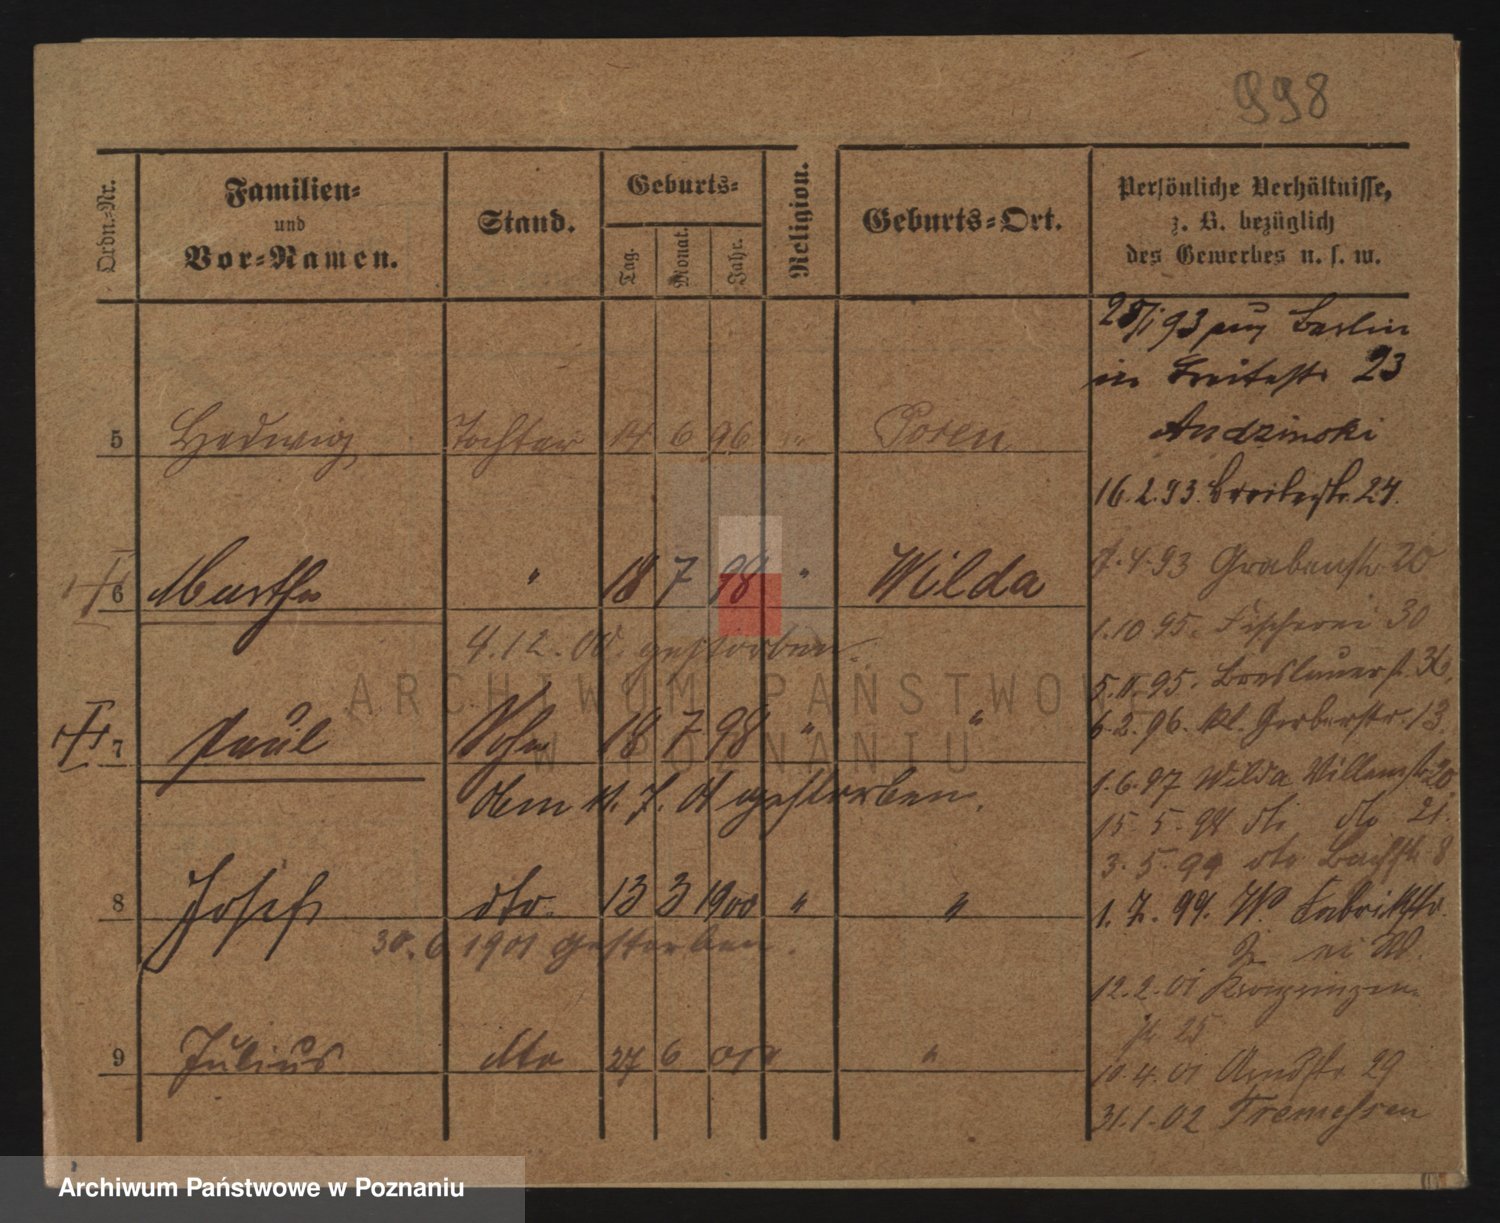 998
Ordn.-Nr.
Familien-
und
Vor-Namen.
Stand.
Geburts-
Tag.
Monat.
Jahr.
Religion.
Geburts-Ort.
Persönliche Verhältnisse,
z. B. bezüglich
des Gewerbes u. s. w.
28/1 93 aus Berlin
in Breitestr 23
Andzinski
5 Hedwig Tochter 14 6 96 " Posen
16.2.93. Breitestr. 24.
6 Martha " 18 7 98 " Wilda
4.93 Grabenstr 20
4.12.00. gestorben.
1.10 95. Fischerei 30
5.11.95. Breslauerst. 36.
7 Paul Sohn 18 7 98 " "
6.2.96. Kl. Gerberstr. 13
den 11. 7. 01 gestorben.
1.6.97 Wilda Villenstr 20
15.5.98 dto 21.
3.5.99 dto Bachstr 8
8 Josef dto. 13 3 1900 " "
1.7.99. W. Fabrikstr.
30.6 1901 gestorben.
12.2.01 Kronprinzen-
str 25
9 Julius dto 27 6 01 "
10.4.01 Arndtstr 29
31.1.02 Tremessen
ARCHIWUM PAŃSTWOWE
W POZNANIU
Archiwum Państwowe w Poznaniu